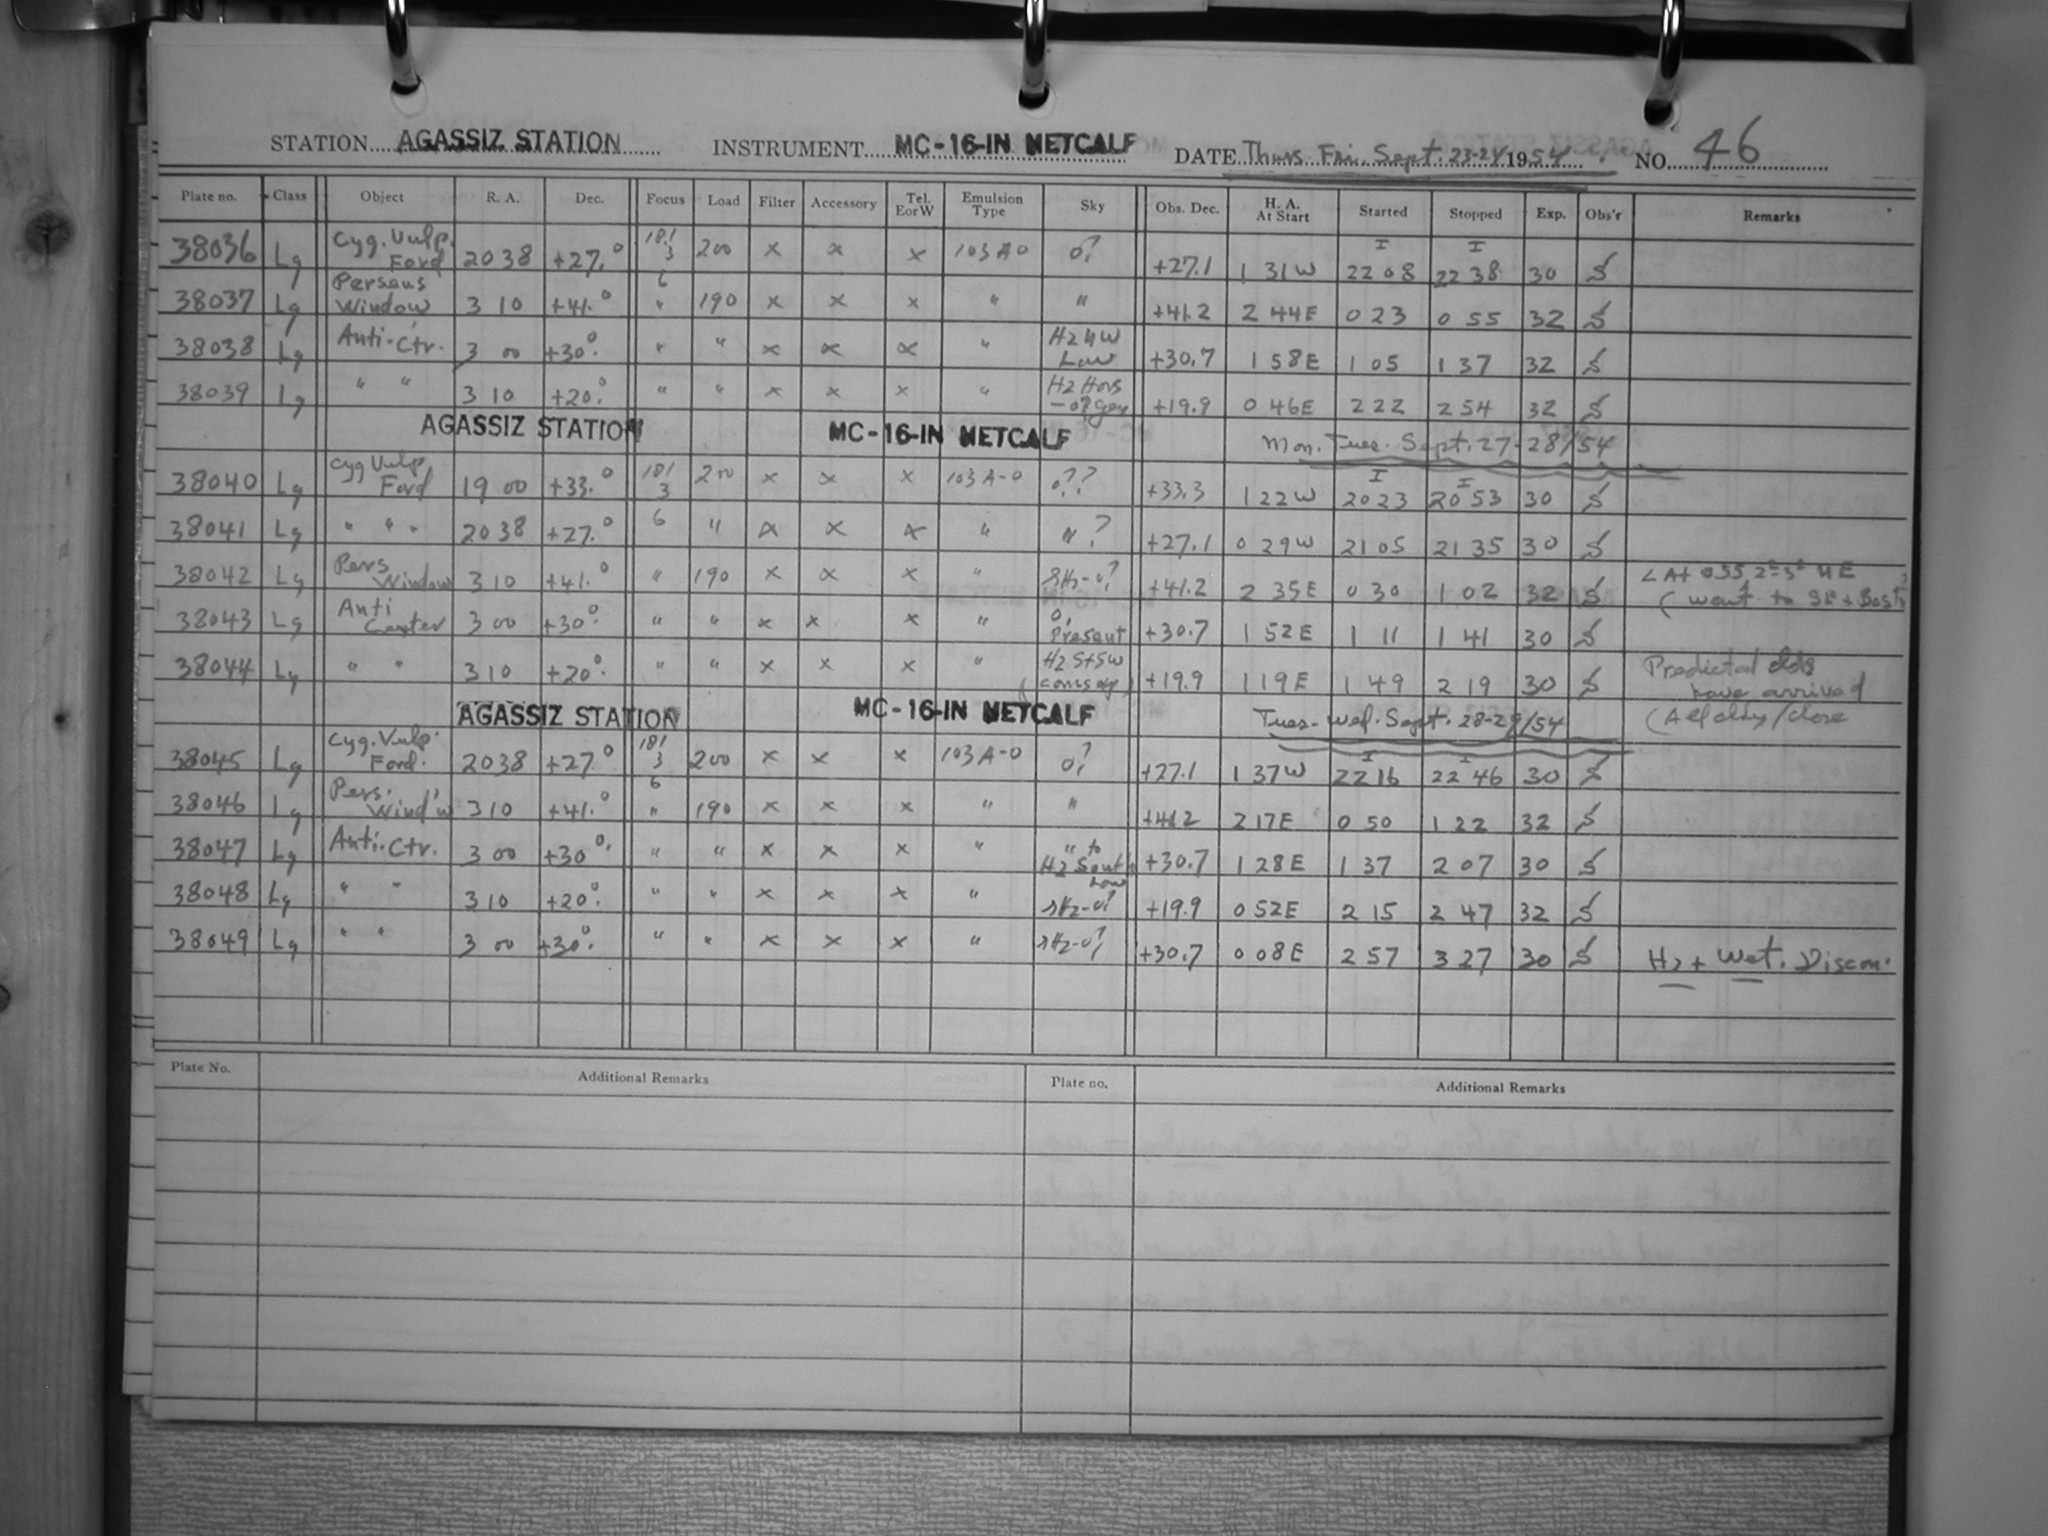 STATION AGASSIZ STATION INSTRUMENT MC-16-IN METCALF DATE Thurs. Fri. Sept. 23-24 1954 NO. 46
Plate no. Class Object R. A. Dec. Focus Load Filter Accessory Tel. E or W Emulsion Type Sky Obs. Dec. H. A. At Start Started Stopped Exp. Obs'r Remarks
38036 Lg Cyg. Vulp. Ford 20 38 +27.° 18.1 3 200 x x x 103 A0 0? +27.1 1 31W I 22 08 I 22 38 30 S
38037 Lg Perseus Window 3 10 +41.° 6 " 190 x x x " " +41.2 2 44E 0 23 0 55 32 S
38038 Lg Anti-Ctr. 3 00 +30°. " " x x x " Hz NW Low +30.7 1 58E 1 05 1 37 32 S
38039 Lg " " 3 10 +20.° " " x x x " Hz +19.9 0 46E 2 22 2 54 32 S
AGASSIZ STATION MC-16-IN METCALF Mon. Tues. Sept. 27-28/54
38040 Lg Cyg Vulp Ford 19 00 +33.° 181 3 200 x x x 103 A-0 0?? +33.3 1 22W I 20 23 I 20 53 30 S
38041 Lg " " " 20 38 +27.° 6 " x x x " "? +27.1 0 29W 21 05 21 35 30 S
38042 Lg Pers Window 3 10 +41.° " 190 x x x " sHz-0? +41.2 2 35E 0 30 1 02 32 S (went to SE + Bost)
38043 Lg Anti Center 3 00 +30° " " x x x " 0, Present +30.7 1 52E 1 11 1 41 30 S
38044 Lg " " 3 10 +20° " " x x x " Hz S+SW +19.9 1 19E 1 49 2 19 30 S Predicted clds have arrived
AGASSIZ STATION MC-16-IN METCALF Tues-Wed. Sept. 28-29/54 (All cldy/close
38045 Lg Cyg. Vulp. Ford. 20 38 +27.° 181 3 200 x x x 103 A-0 0? +27.1 1 37W I 22 16 I 22 46 30 S
38046 Lg Pers. Wind'w 3 10 +41.° 6 " 190 x x x " " +41.2 2 17E 0 50 1 22 32 S
38047 Lg Anti-Ctr. 3 00 +30°. " " x x x " " to Hz South Low +30.7 1 28E 1 37 2 07 30 S
38048 Lg " " 3 10 +20.° " " x x x " sHz-0? +19.9 0 52E 2 15 2 47 32 S
38049 Lg " " 3 00 +30.° " " x x x " sHz-0? +30.7 0 08E 2 57 3 27 30 S Hz + Wet. Discon.
Plate No. Additional Remarks Plate no. Additional Remarks